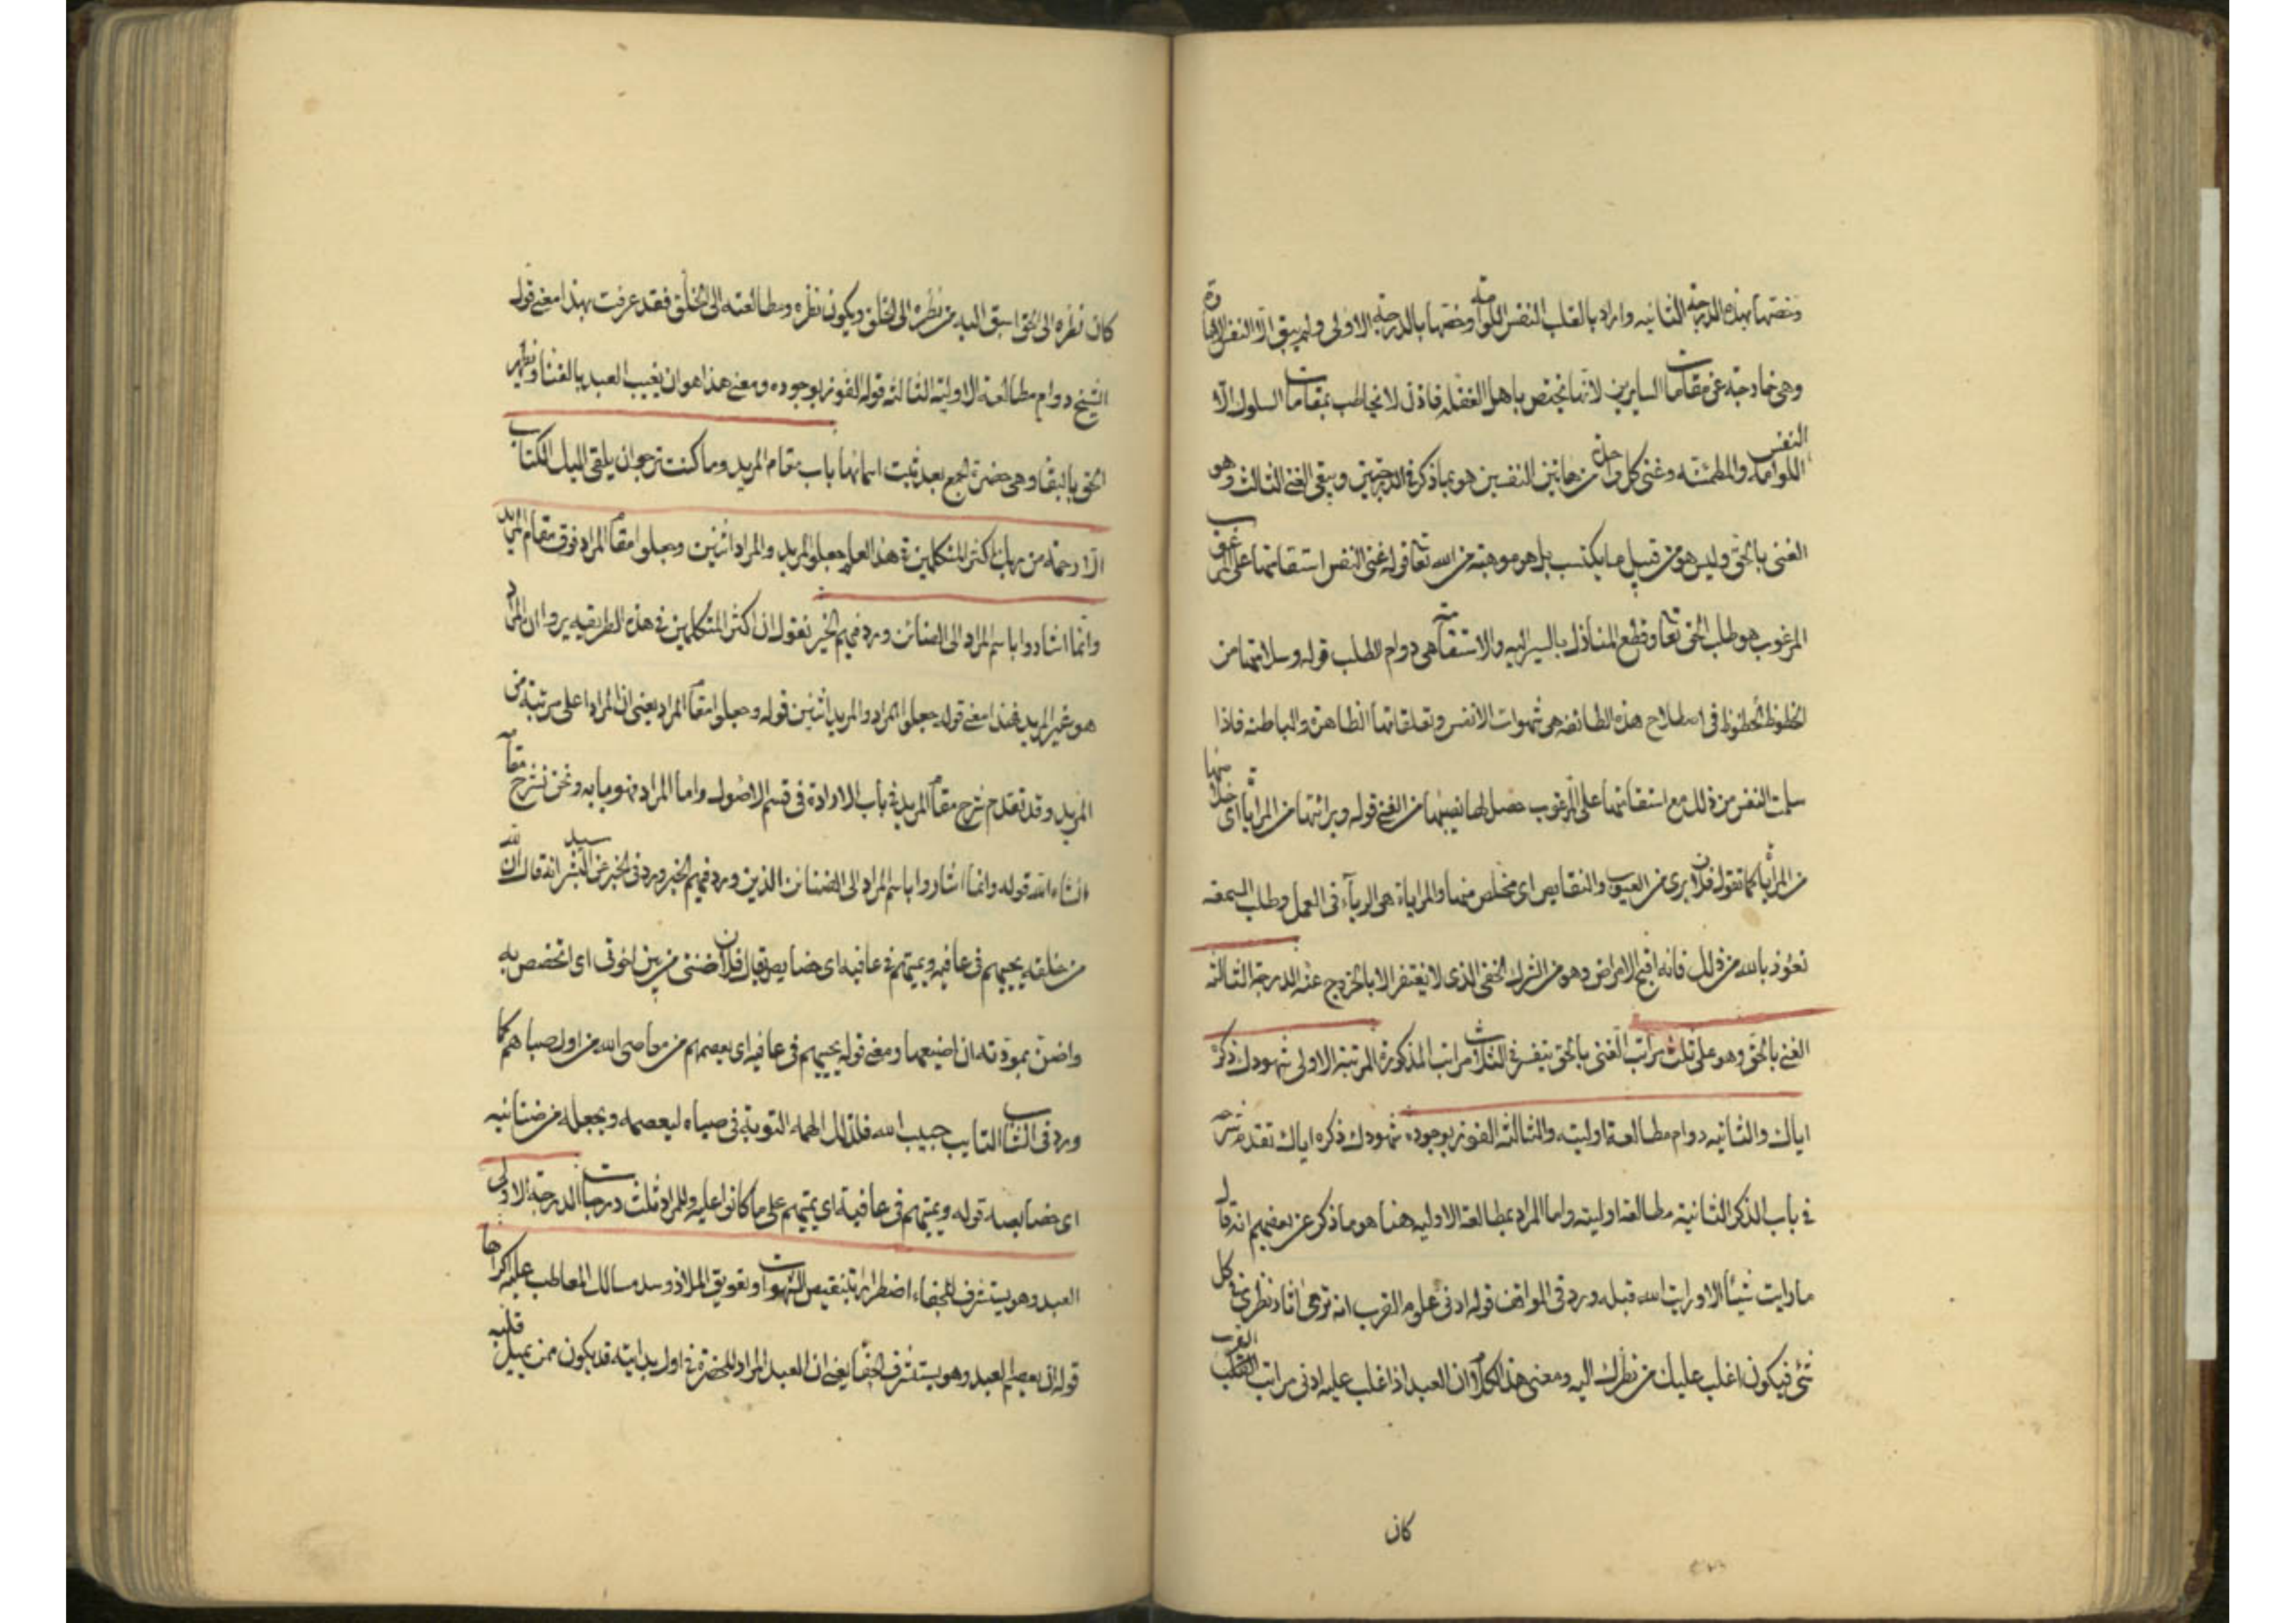 وخصتها بهذه الدرجة الثانيه واراد بالقلب النفس اللوامة وخصتها بالدرجة الاولى ولم يبق الا النفس الامارة
وهى خارجة عن مقامات السايرين لانها تختص باهل الغفله فاذن لا يخاطب بمقامات السلوك الا
النفس اللوامه والمطمئنه وغنى كل واحدة من هاتين النفسين هو بما ذكر فى الدرجتين وبقى الغنى الثالث وهو
الغنى بالحق وليس هو من قبيل ما يكتسب بل هو موهبته من الله تعا قوله غنى النفس استقامتها على المرغوب
المرغوب هو طلب الحق تعا وقطع المنازل بالسير اليه والاستقامة هى دوام الطلب قوله وسلامتها من
الحظوظ الحظوظ فى اصطلاح هذه الطائفه هى شهوات الانفس وتعلقاتها الظاهرة والباطنه فاذا
سلمت النفس من ذلك مع استقامتها على المرغوب حصل لها نصيبها من الغنى قوله وبرائتها من المراياة اى خلاصها
من المراياة كما تقول فلان برى من العيوب والنقايص اى مخلص منها والمراياة هى الرياء فى العمل وطلب السمعه
نعوذ بالله من ذلك فانه اقبح الامراض وهو من الشرك الخفى الذى لا يغتفر الا بالخروج عنه الدرجة الثالثه
الغنى بالحق وهو على ثلث مراتب الغنى بالحق يتفسر فى الثلاث مراتب المذكورة المرتبة الاولى شهودك ذكره
اياك والثانيه دوام مطالعة اوليته والثالثه الفوز بوجوده شهودك ذكره اياك تقدم شرحه
فى باب الذكر الثانية مطالعة اوليته واما المراد بمطالعة الاوليه هنا هو ما ذكر عن بعضهم انه قال
ما رايت شيئا الا ورايت الله قبله ورد فى المواقف قوله ادنى علوم القرب ان ترى اثار نظرى فى كل
شى فيكون اغلب عليك من نظرك اليه ومعنى هذا الكلام ان العبد اذا غلب عليه ادنى مراتب القرب
كان
كان نظره الى الحق اسبق اليه من نظره الى الخلق ويكون نظره ومطالعته الى الخلق فقد عرفت بهذا معنى قول
الشيخ دوام مطالعة الاولية الثالثه قوله الفوز بوجوده ومعنى هذا هو ان يغيب العبد بالفنا ويظهر
الحق بالبقا وهى حضرة الجمع بعد ثبت اسمائها باب مقام المريد وما كنت ترجو ان يلقى اليك الكتاب
الا رحمة من ربك اكثر المتكلمين فى هذا العلم جعلوا المريد والمراد اثنين وجعلوا مقام المراد فوق مقام المريد
وانما اشاروا باسم المراد الى الضنائن ورد فيهم الخبر نقول ان اكثر المتكلمين فى هذه الطريقه يروا ان المراد
هو غير المريد فهذا معنى قوله جعلوا المراد والمريد اثنين قوله وجعلوا مقام المراد يعنى ان المراد اعلى مرتبة من
المريد وقد تقدم شرح مقام المريد فى باب الارادة فى قسم الاصول واما المراد فهو ما به ونحن نشرح مقامه
ان شاء الله قوله وانما اشاروا باسم المراد الى الضنائن الذين ورد فيهم الخبر ورد فى الخبر عن سيد البشر انه قال ان لله
من خلقه يحييهم فى عافيه ويميتهم فى عافيه اى خصايص يقال فلان ضنى من بين اخوتى اى اتخصص به
واضن بمودته ان اضيعها ومعنى قوله يحييهم فى عافيه اى يعصمهم من معاصى الله من اول صباهم كما
ورد فى الشاب التايب حبيب الله فلذلك الهمه التوبة فى صباه ليعصمه ويجعله من ضنائنه
اى خصايصه قوله ويميتهم فى عافية اى يميتهم على ما كانوا عليه وللمراد ثلث درجات الدرجة الاولى
العبد وهو يستشرف للجفاء اضطرارا بتنقيص الشهوات وتعويق الملاذ وسد مسالك المعاطب عليه اكراها
قوله ان يعصم العبد وهو يستشرف الجفا يعنى ان العبد المراد للحضرة فى اول بدايته قد يكون ممن يميل قلبه